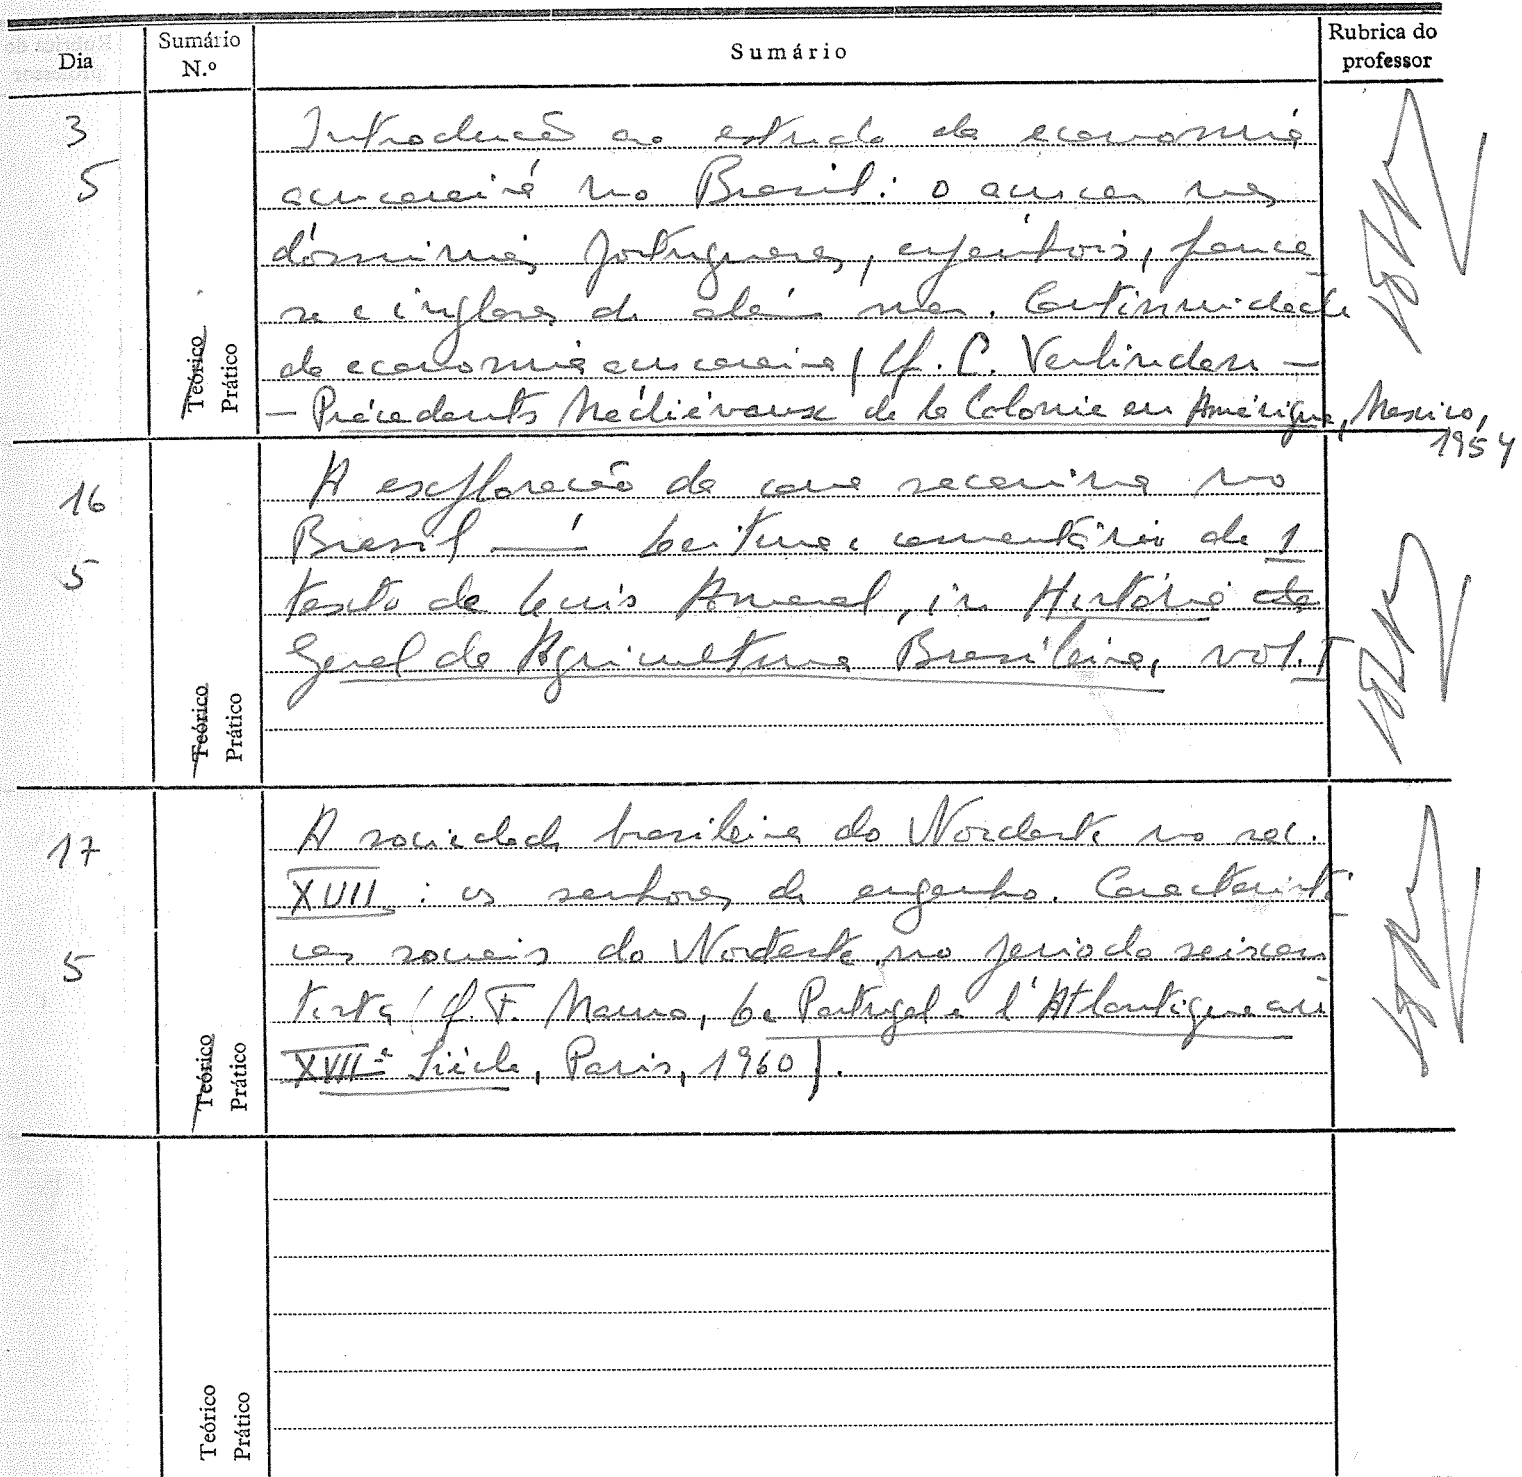 Dia
Sumário
N.º
Sumário
Rubrica do
professor
3
5
Teórico
Prático
Introdução ao estudo da economia
açucareira no Brasil: o açucar nos
domínios portugueses, espanhois, france
se e ingleses de além mar. Continuidade
da economia açucareira (cf. C. Verlinden —
— Précedents Médiévaux de la Colonie en Amérique, Mexico,
1954
16
5
Teórico
Prático
A exploração da cana sacarina no
Brasil — Leitura e comentário de 1
texto de Luis Amaral, in História da
Geral da Agricultura Brasileira, vol. I
17
5
Teórico
Prático
A sociedade brasileira do Nordeste no sec.
XVII: os senhores de engenho. Característi
cas sociais do Nordeste no periodo seiscen
tista (cf. F. Mauro, Le Portugal e l'Atlantique au
XVIIe Siècle, Paris, 1960).
Teórico
Prático